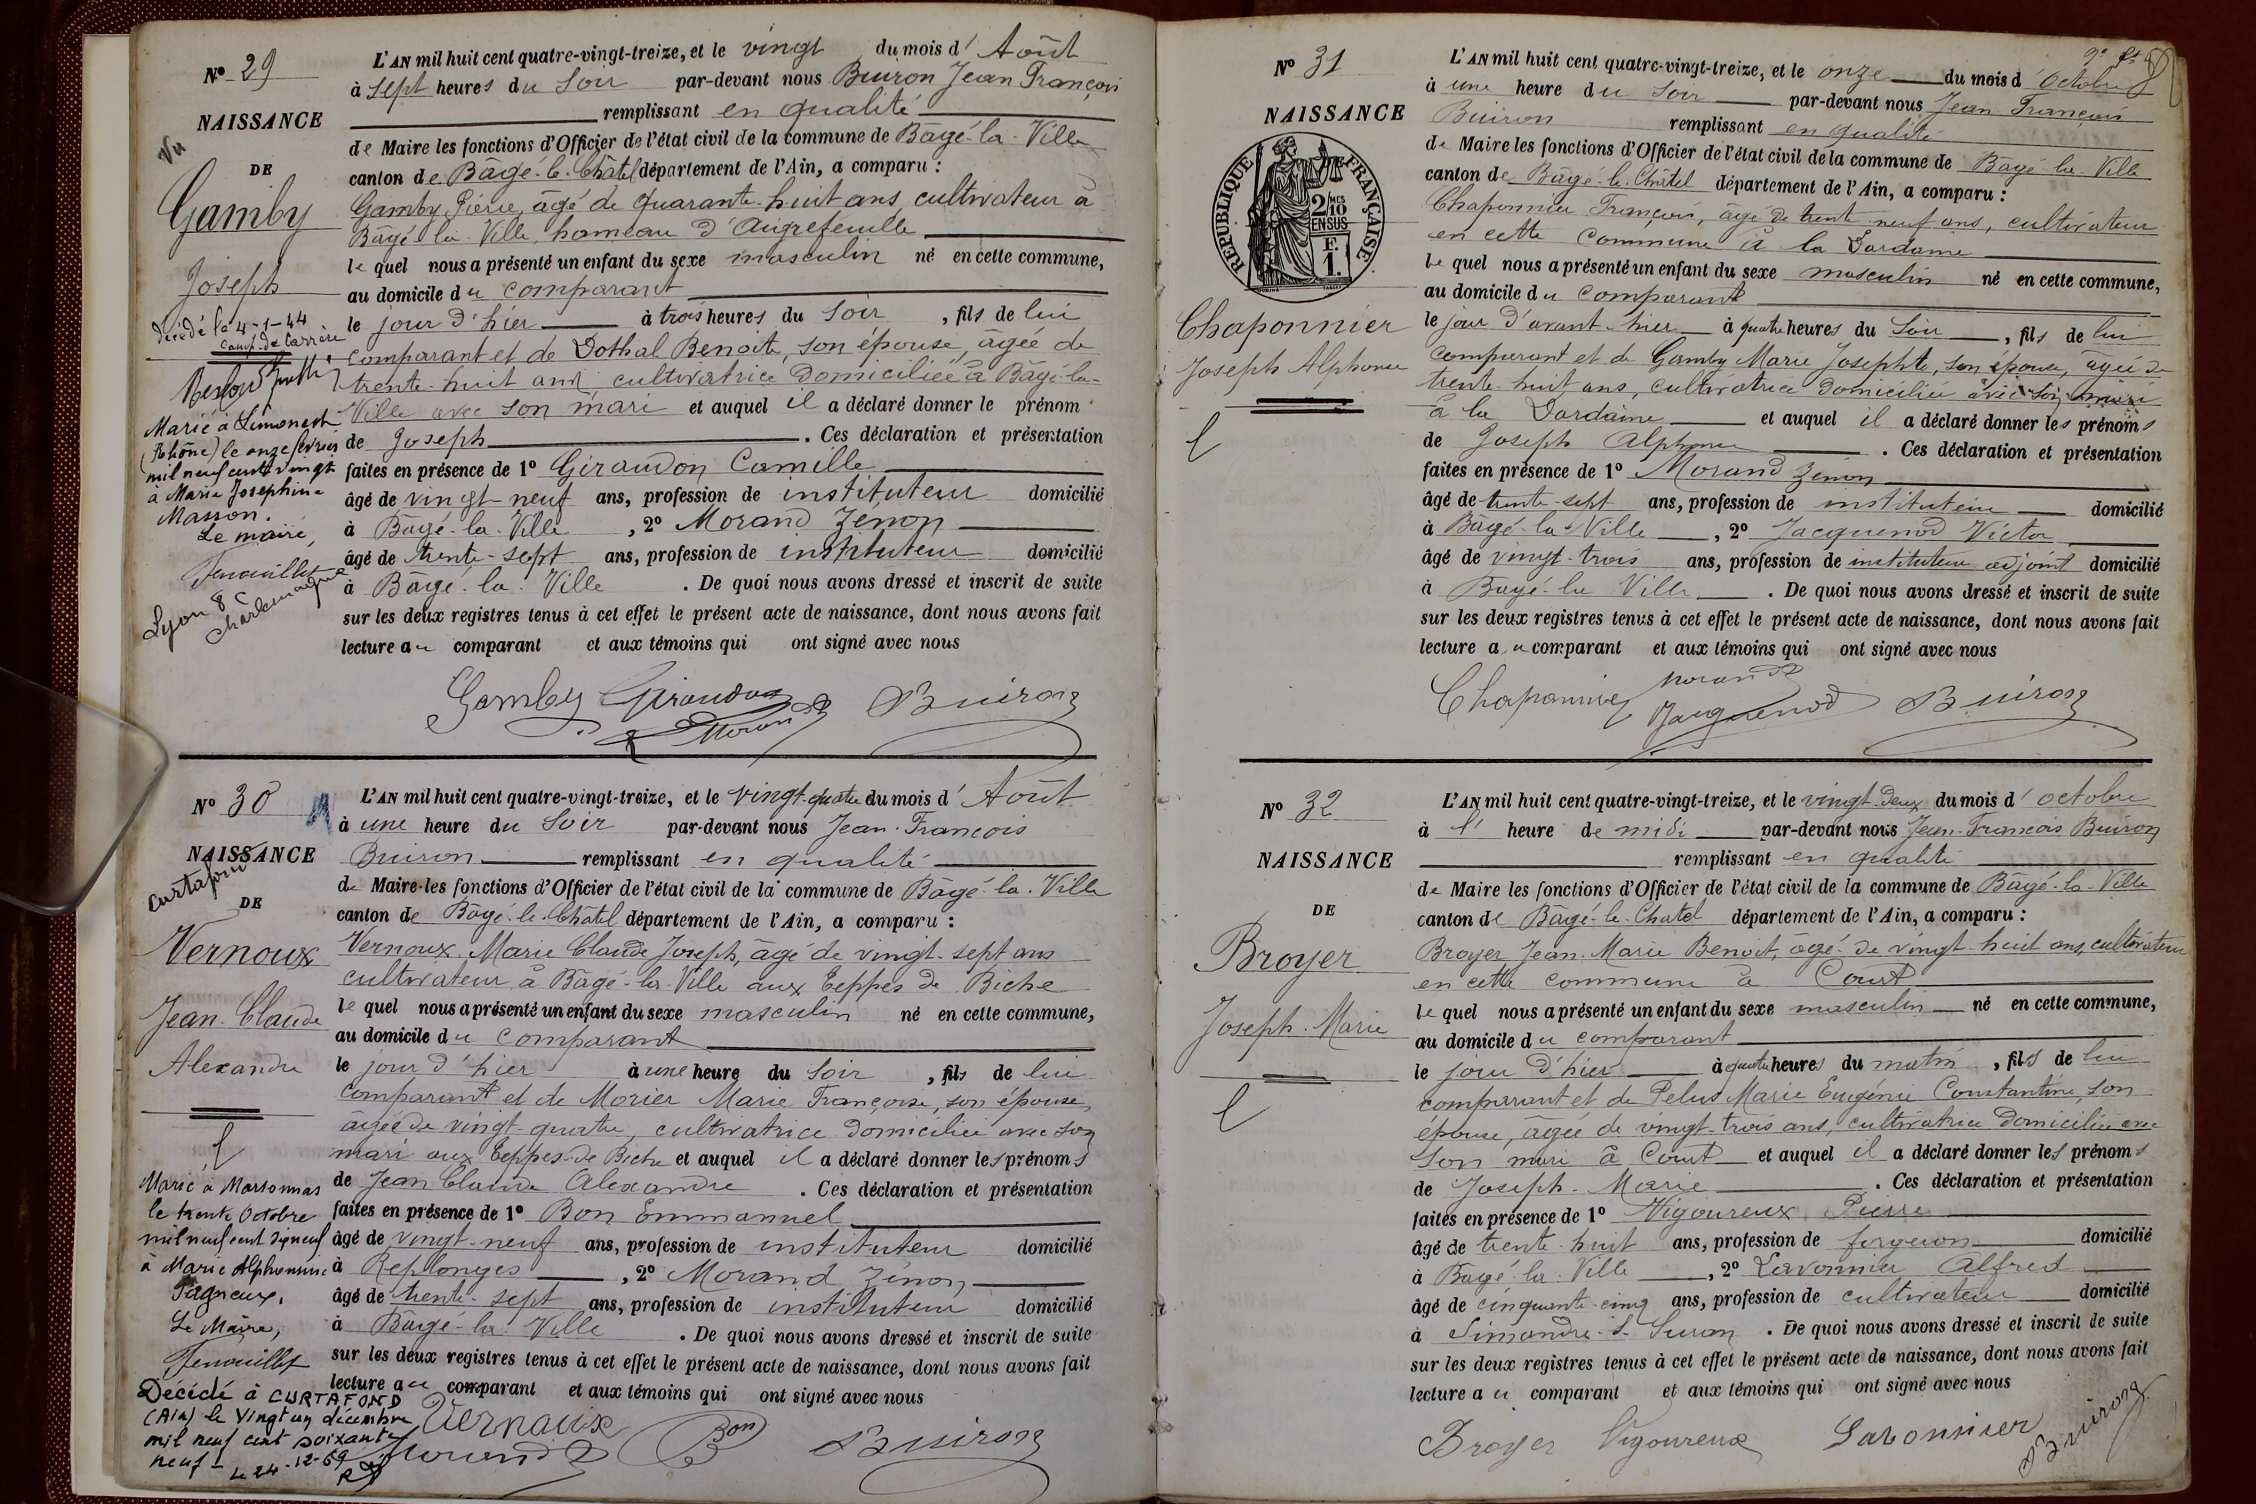 N° 29
NAISSANCE
Vu
DE
Gamby
Joseph
décédé le 4-1-44
Marié à Limonest
(Rhône) le onze février
mil neuf cent vingt
à Marie Joséphine
Masson.
Le maire,
Fenouillet
Lyon 8 c
Charlemagne
L'AN mil huit cent quatre-vingt-treize, et le vingt du mois d'Août
à sept heures du soir par-devant nous Buiron Jean François
remplissant en qualité
de Maire les fonctions d'Officier de l'état civil de la commune de Bâgé-la-Ville
canton de Bâgé-le-Châtel département de l'Ain, a comparu :
Gamby Pierre, âgé de quarante-huit ans, cultivateur à
Bâgé-la-Ville, hameau d'Aigrefeuille
le quel nous a présenté un enfant du sexe masculin né en cette commune,
au domicile du comparant
le jour d'hier à trois heures du soir, fils de lui
comparant et de Dothal Benoite, son épouse, âgée de
trente-huit ans cultivatrice domiciliée à Bâgé-la-
Ville avec son mari et auquel il a déclaré donner le prénom
de Joseph . Ces déclaration et présentation
faites en présence de 1° Giraudon Camille
âgé de vingt-neuf ans, profession de instituteur domicilié
à Bâgé-la-Ville, 2° Morand Zénon
âgé de trente-sept ans, profession de instituteur domicilié
à Bâgé-la-Ville . De quoi nous avons dressé et inscrit de suite
sur les deux registres tenus à cet effet le présent acte de naissance, dont nous avons fait
lecture au comparant et aux témoins qui ont signé avec nous
Gamby Giraudon Buiron
Morand
N° 30
NAISSANCE
Curtafond
DE
Vernoux
Jean-Claude
Alexandre
Marié à Marsonnas
le trente Octobre
mil neuf cent dix neuf
à Marie Alphonsine
Pagneux.
Le Maire,
Fenouillet
Décédé à CURTAFOND
(Ain) le Vingt un décembre
mil neuf cent soixante
neuf - Le 24-12-69
L'AN mil huit cent quatre-vingt-treize, et le vingt-quatre du mois d'Août
à une heure du soir par-devant nous Jean-François
Buiron remplissant en qualité
de Maire les fonctions d'Officier de l'état civil de la commune de Bâgé-la-Ville
canton de Bâgé-le-Châtel département de l'Ain, a comparu :
Vernoux Marie Claude Joseph, âgé de vingt-sept ans
cultivateur à Bâgé-la-Ville aux Teppes de Biche
le quel nous a présenté un enfant du sexe masculin né en cette commune,
au domicile du comparant
le jour d'hier à une heure du soir, fils de lui
comparant et de Morier Marie Françoise, son épouse,
âgée de vingt-quatre, cultivatrice domiciliée avec son
mari aux Teppes-de Biche et auquel il a déclaré donner les prénoms
de Jean Claude Alexandre . Ces déclaration et présentation
faites en présence de 1° Bon Emmanuel
âgé de vingt-neuf ans, profession de instituteur domicilié
à Replonges, 2° Morand Zénon
âgé de trente-sept ans, profession de instituteur domicilié
à Bâgé-la-Ville . De quoi nous avons dressé et inscrit de suite
sur les deux registres tenus à cet effet le présent acte de naissance, dont nous avons fait
lecture au comparant et aux témoins qui ont signé avec nous
Vernoux Bon Buiron
Morand
N° 31
NAISSANCE
RÉPUBLIQUE FRANÇAISE
2/10 EN SUS
F. 1.
Chaponnier
Joseph Alphonse
L'AN mil huit cent quatre-vingt-treize, et le onze du mois d'Octobre
à une heure du soir par-devant nous Jean François
Buiron remplissant en qualité
de Maire les fonctions d'Officier de l'état civil de la commune de Bâgé-la-Ville
canton de Bâgé-le-Châtel département de l'Ain, a comparu :
Chaponnier François, âgé de trente-neuf ans, cultivateur
en cette commune à la Dardaine
le quel nous a présenté un enfant du sexe masculin né en cette commune,
au domicile du comparant
le jour d'avant-hier à quatre heures du soir, fils de lui
comparant et de Gamby Marie Josephte, son épouse, âgée de
trente-huit ans, cultivatrice domiciliée avec son mari
à la Dardaine et auquel il a déclaré donner les prénoms
de Joseph Alphonse . Ces déclaration et présentation
faites en présence de 1° Morand Zénon
âgé de trente-sept ans, profession de instituteur domicilié
à Bâgé-la-Ville, 2° Jacquenod Victor
âgé de vingt-trois ans, profession de instituteur adjoint domicilié
à Bâgé-la Ville . De quoi nous avons dressé et inscrit de suite
sur les deux registres tenus à cet effet le présent acte de naissance, dont nous avons fait
lecture au comparant et aux témoins qui ont signé avec nous
Chaponnier Morand
Jacquenod Buiron
N° 32
NAISSANCE
DE
Broyer
Joseph-Marie
L'AN mil huit cent quatre-vingt-treize, et le vingt-deux du mois d'octobre
à l' heure de midi par-devant nous Jean-François Buiron
remplissant en qualité
de Maire les fonctions d'Officier de l'état civil de la commune de Bâgé-la-Ville
canton de Bâgé-le-Chatel département de l'Ain, a comparu :
Broyer Jean-Marie Benoit, âgé de vingt-huit ans, cultivateur
en cette commune à Court
le quel nous a présenté un enfant du sexe masculin né en cette commune,
au domicile du comparant
le jour d'hier à quatre heures du matin, fils de lui
comparant et de Pelus Marie Eugénie Constantine, son
épouse, âgée de vingt-trois ans, cultivatrice domiciliée avec
son mari à Court et auquel il a déclaré donner les prénoms
de Joseph-Marie . Ces déclaration et présentation
faites en présence de 1° Vigoureux Pierre
âgé de trente-huit ans, profession de forgeron domicilié
à Bâgé-la-Ville, 2° Lavonnier Alfred
âgé de cinquante-cinq ans, profession de cultivateur domicilié
à Simandre-s-Suran . De quoi nous avons dressé et inscrit de suite
sur les deux registres tenus à cet effet le présent acte de naissance, dont nous avons fait
lecture au comparant et aux témoins qui ont signé avec nous
Broyer Vigoureux Lavonnier Buiron